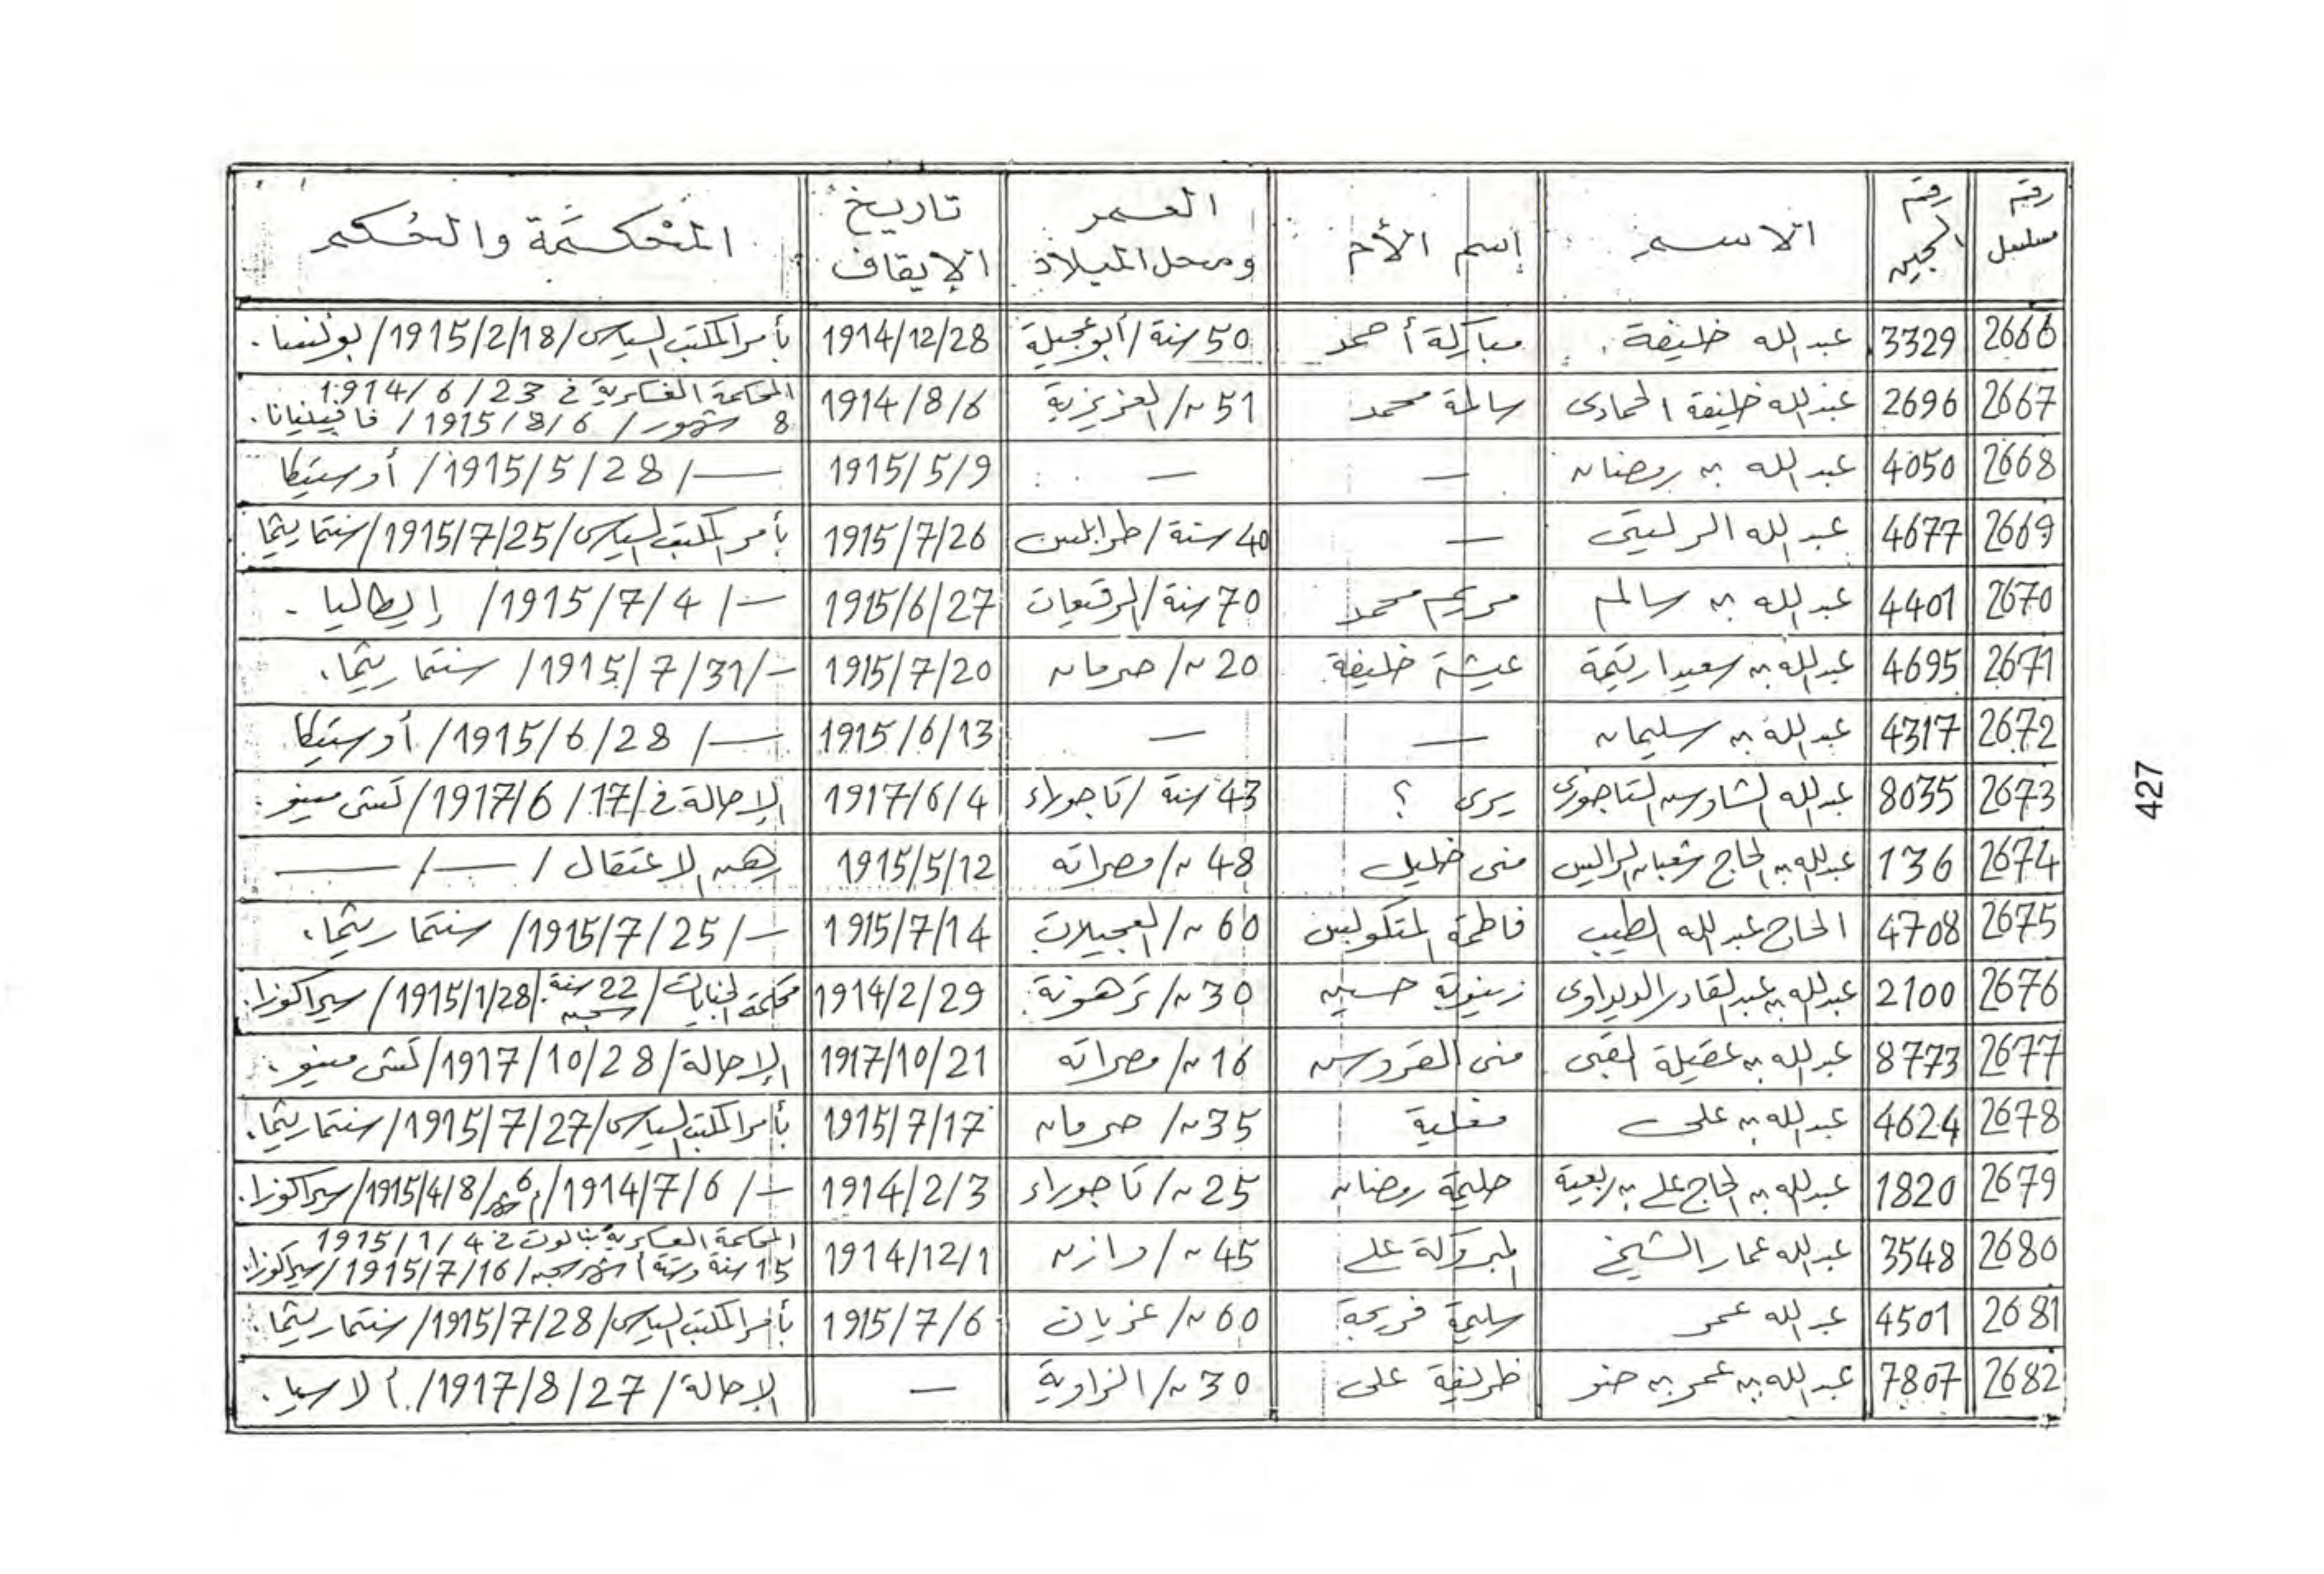 رقم مسلسل | رقم السجين | الاسم | إسم الأم | العمر ومحل الميلاد | تاريخ الإيقاف | المحكمة والحكم
2666 | 3329 | عبد الله خليفة . | مباركة أحمد | 50 سنة / أبو عجيلة | 1914/12/28 | بأمر المكتب السياسي / 1915/2/18 / بونسا .
2667 | 2696 | عبد الله خليفة الحمادى | سالمة محمد | 51 ~ / العزيزية | 1914/8/6 | المحكمة العسكرية في 23 / 6 / 1914
8 شهور / 1915/8/6 / فافينيانا .
2668 | 4050 | عبد الله بن رمضان | — | — | 1915/5/9 | — / 1915/5/28 / أوستيكا
2669 | 4677 | عبد الله الزليتى | — | 40 سنة / طرابلس | 1915/7/26 | بأمر المكتب السياسي / 1915/7/25 / سنتماريثما
2670 | 4401 | عبد الله بن سالم | مريم محمد | 70 سنة / الرقيعات | 1915/6/27 | — / 1915/7/4 / إيطاليا .
2671 | 4695 | عبد الله بن سعيد ارتيمة | عيشة خليفة | 20 ~ / صرمان | 1915/7/20 | — / 1915/7/31 / سنتماريثما .
2672 | 4317 | عبد الله بن سليمان | — | — | 1915/6/13 | — / 1915/6/28 / أوستيكا
2673 | 8035 | عبد الله الشاوس التاجورى | يرى ؟ | 43 سنة / تاجوراء | 1917/6/4 | الإحالة في / 1917/6/17 /
2674 | 136 | عبد الله بن الحاج شعبان | منى خليل | 48 ~ / مصراته | 1915/5/12 | رهن الاعتقال / — / —
2675 | 4708 | الحاج عبد الله الطيب | فاطمة | 60 ~ / العجيلات | 1915/7/14 | — / 1915/7/25 / سنتماريثما .
2676 | 2100 | عبد الله بن عبد القادر | زينوبة حسين | 30 ~ / ترهونة | 1914/2/29 | محكمة الجنايات / 22 سنة سجن / 1915/1/28 / سيراكوزا .
2677 | 8773 | عبد الله بن عقيلة | منى | 16 ~ / مصراته | 1917/10/21 | الإحالة / 1917/10/28 /
2678 | 4624 | عبد الله بن على | مغلية | 35 ~ / صرمان | 1915/7/17 | بأمر المكتب السياسي / 1915/7/27 / سنتماريثما .
2679 | 1820 | عبد الله بن الحاج على بن ربعية | حليمة رمضان | 25 ~ / تاجوراء | 1914/2/3 | — / 1914/7/6 / 6 أشهر / 1915/4/8 / سيراكوزا .
2680 | 3548 | عبد الله عمار الشيخ | المبروكة على | 45 ~ / وازن | 1914/12/1 | المحكمة العسكرية بنالوت في 4 / 1 / 1915
15 سنة وستة أشهر سجن / 1915/7/16 / سيراكوزا .
2681 | 4501 | عبد الله عمر | سليمة فريحة | 60 ~ / غريان | 1915/7/6 | بأمر المكتب السياسي / 1915/7/28 / سنتماريثما .
2682 | 7807 | عبد الله بن عمر بن ضو | ظريفة على | 30 ~ / الزاوية | — | الإحالة / 1917/8/27 /
427